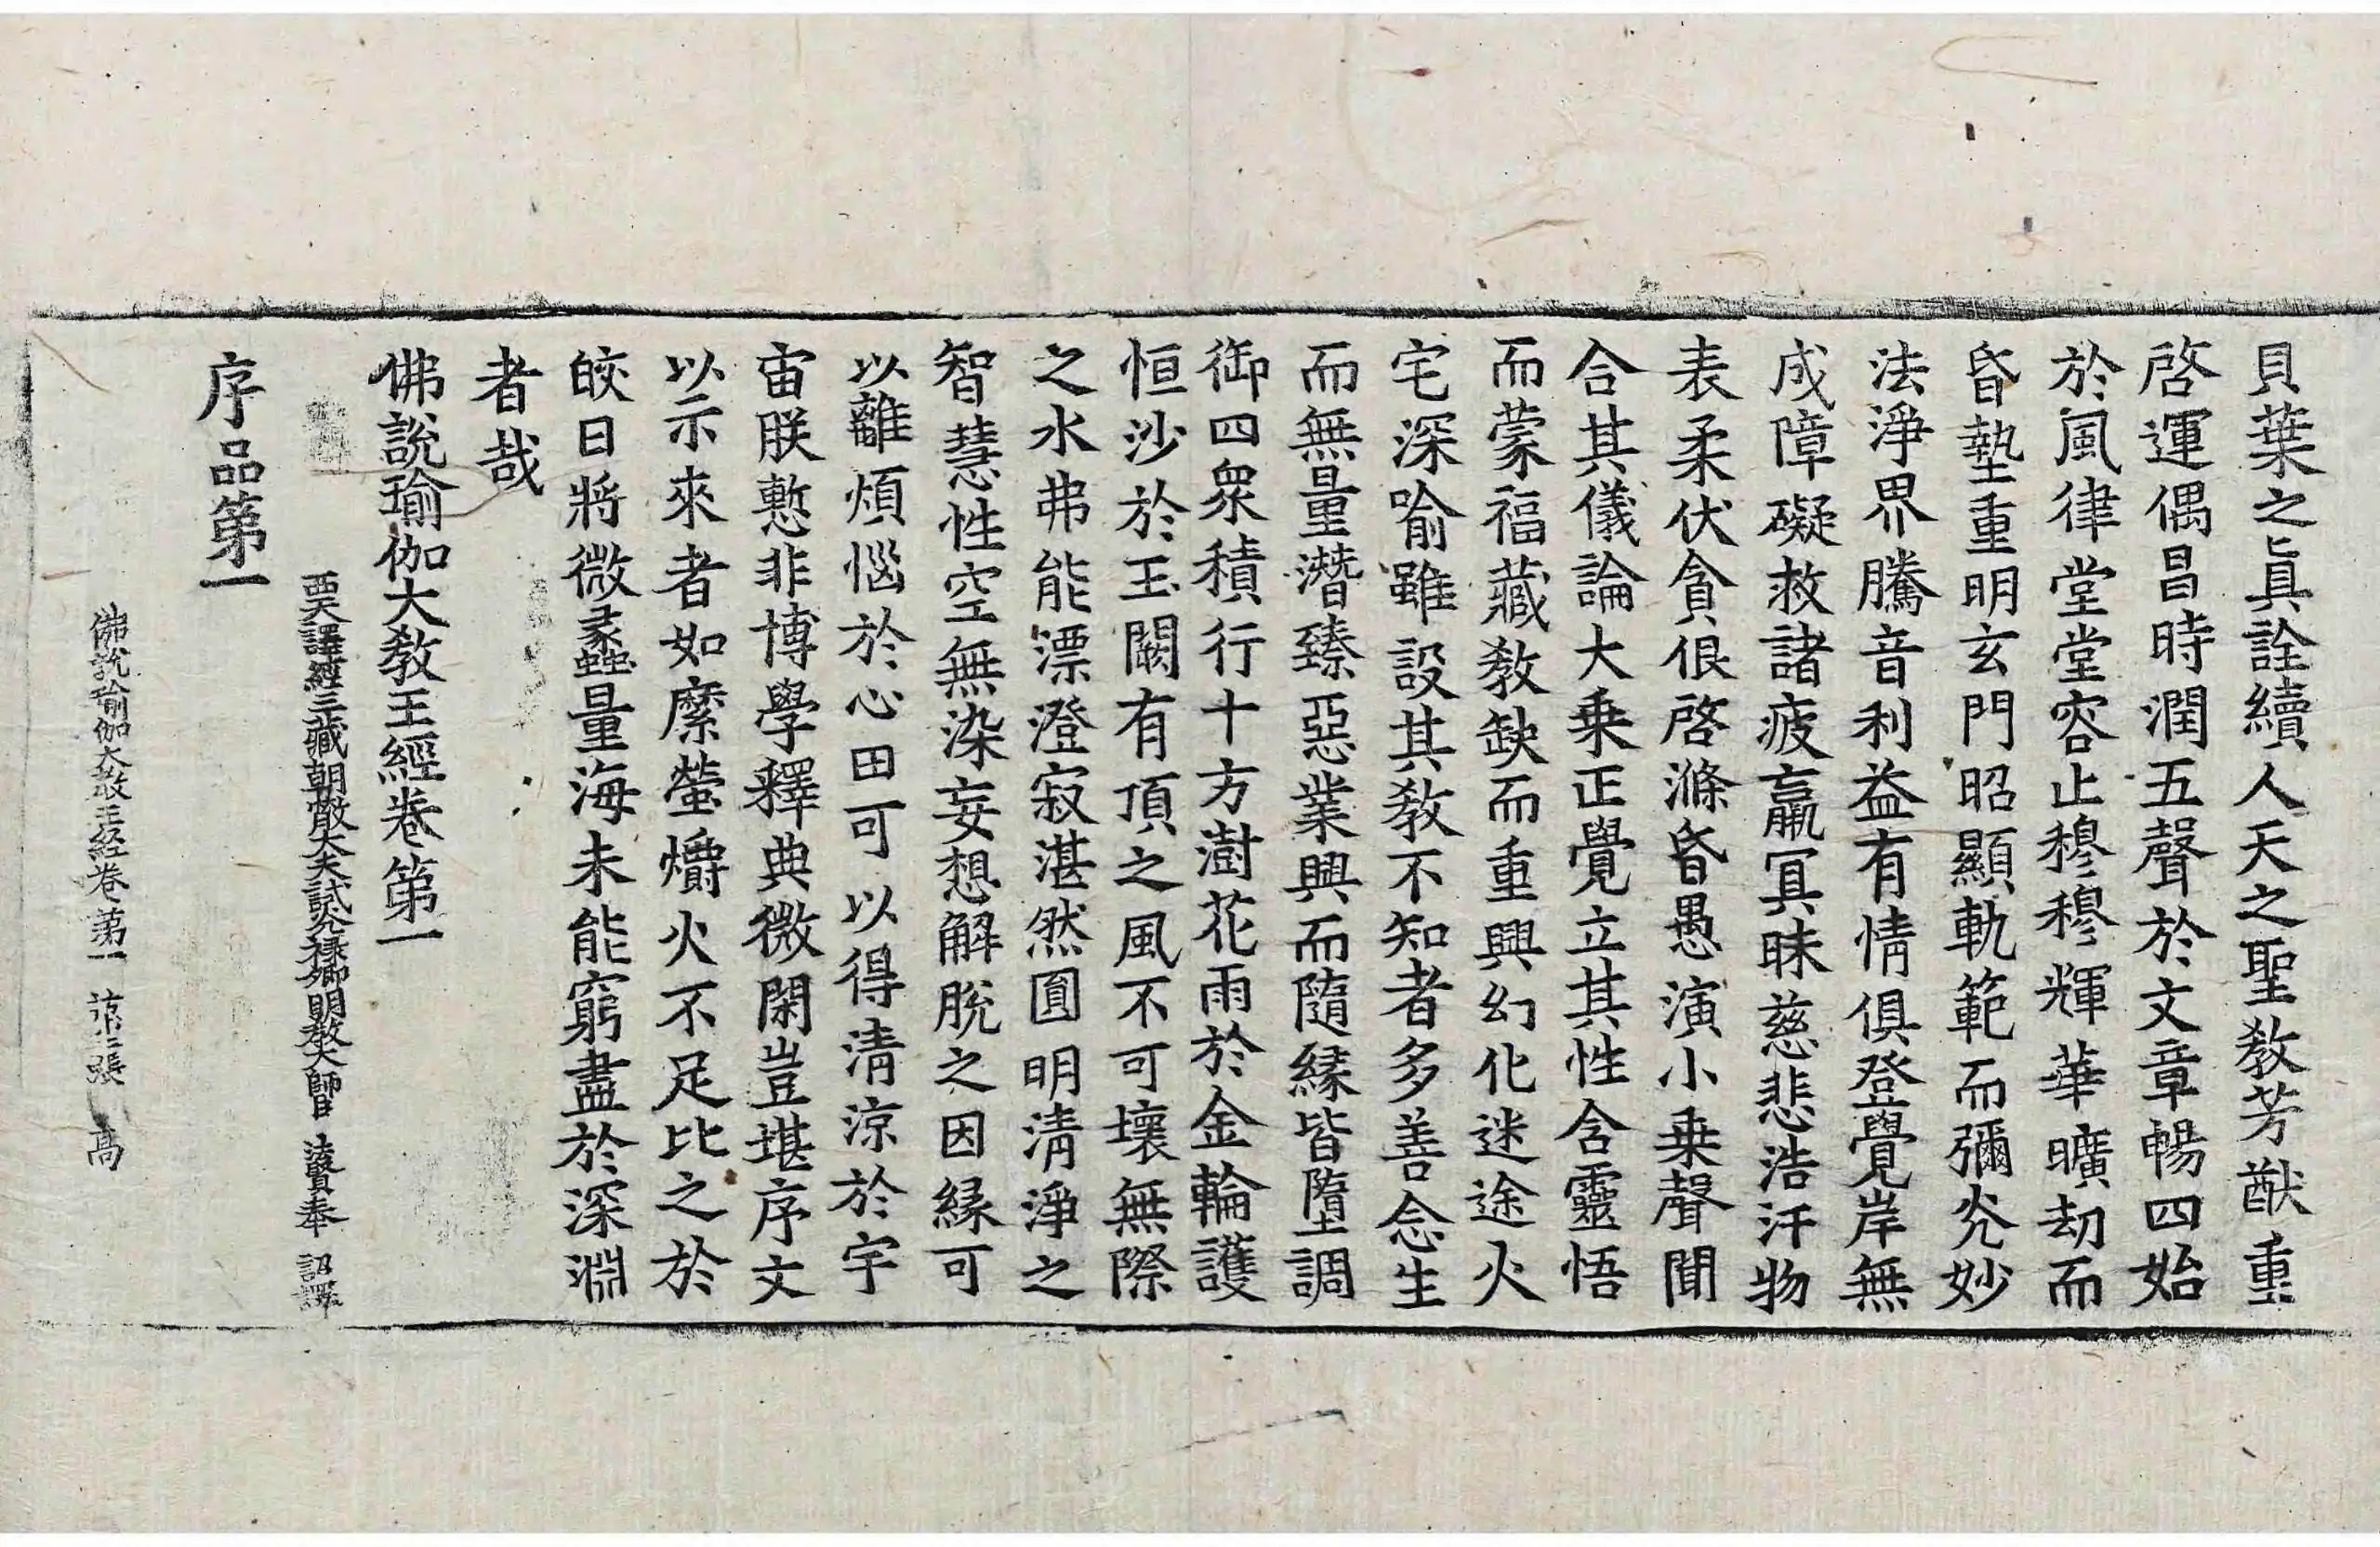 貝葉之眞詮續人天之聖敎芳猷重
啓運偶昌時潤五聲於文章暢四始
於風律堂堂容止穆穆輝華曠劫而
昏墊重明玄門昭顯軌範而彌光妙
法淨界騰音利益有情俱登覺岸無
成障礙救諸疲羸冥昧慈悲浩汗物
表柔伏貪佷啓滌昏愚演小乗聲聞
合其儀論大乗正覺立其性含靈悟
而蒙福藏敎缺而重興幻化迷途火
宅深喻雖設其敎不知者多善念生
而無量潛臻惡業興而隨緣皆墮調
御四衆積行十方澍花雨於金輪護
恒沙於玉闕有頂之風不可壞無際
之水弗能漂澄寂湛然圓明清淨之
智慧性空無染妄想解脫之因緣可
以離煩惱於心田可以得清涼於宇
宙朕慙非博學釋典微閑豈堪序文
以示來者如縻螢爝火不足比之於
皎日將微蠡量海未能窮盡於深淵
者哉
佛說瑜伽大敎王經卷第一
西天譯經三藏朝散大夫試光祿卿明敎大師臣法賢奉 詔譯
序品第一
佛說瑜伽大敎王経卷第一 第二張 高